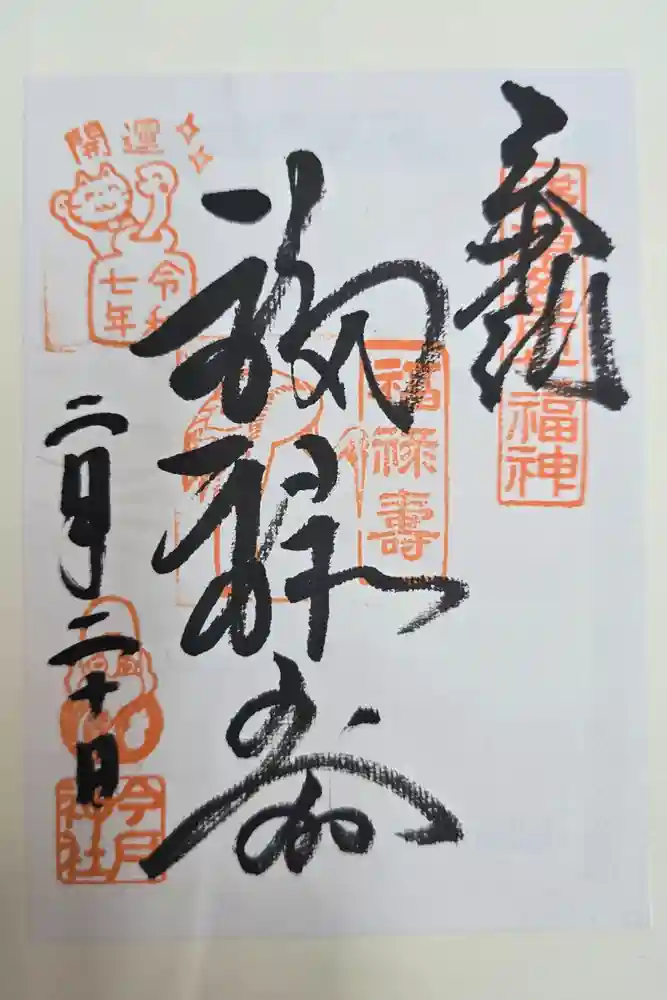 奉拝
福神
福禄寿
福禄壽
開運
令和
七年
二月二十日
今戸
神社